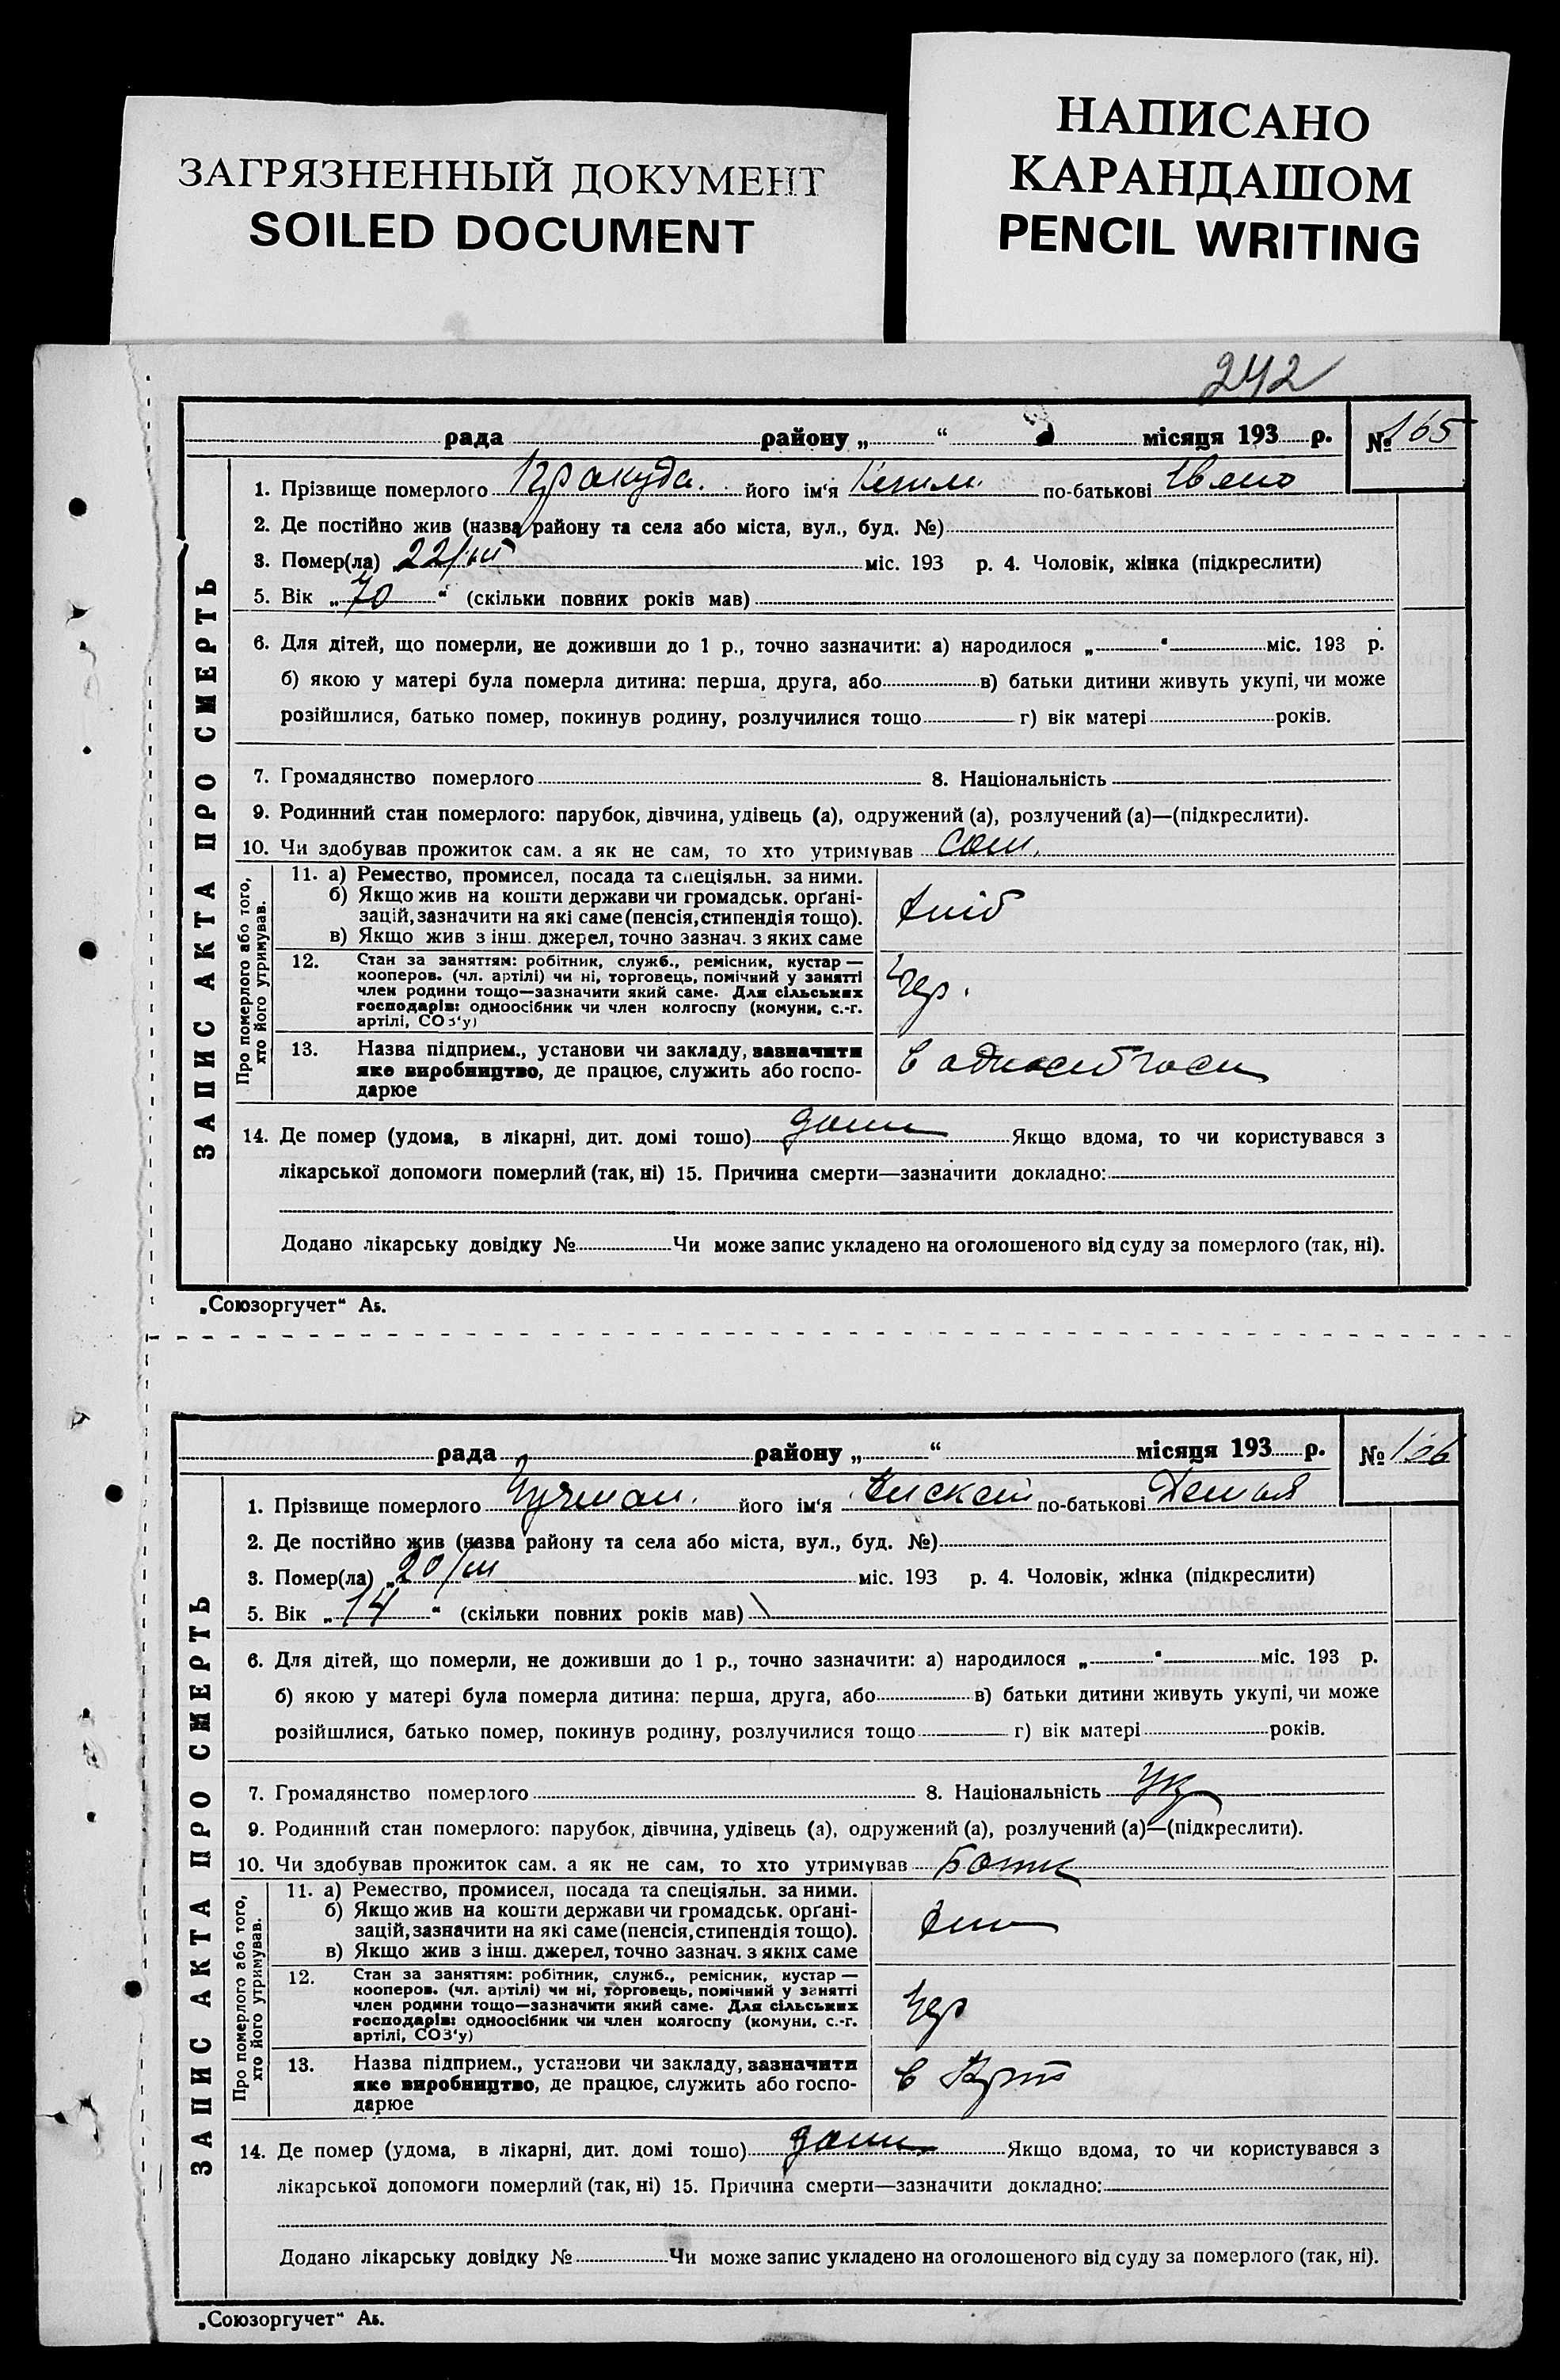 ЗАГРЯЗНЕННЫЙ ДОКУМЕНТ
SOILED DOCUMENT
НАПИСАНО
КАРАНДАШОМ
PENCIL WRITING
242
рада району „ “ місяця 193 р. № 165
ЗАПИС АКТА ПРО СМЕРТЬ
1. Прізвище померлого його ім‘я по-батькові
2. Де постійно жив (назва району та села або міста, вул., буд. №)
3. Помер(ла) „22/III міс. 193 р. 4. Чоловік, жінка (підкреслити)
5. Вік „70“ (скільки повних років мав)
6. Для дітей, що померли, не доживши до 1 р., точно зазначити: а) народилося „ “ міс. 193 р.
б) якою у матері була померла дитина: перша, друга, або в) батьки дитини живуть укупі, чи може
розійшлися, батько помер, покинув родину, розлучилися тощо г) вік матері років.
7. Громадянство померлого 8. Національність
9. Родинний стан померлого: парубок, дівчина, удівець (а), одружений (а), розлучений (а)—(підкреслити).
10. Чи здобував прожиток сам. а як не сам, то хто утримував Сам.
Про померлого або того,
хто його утримував.
11. а) Ремество, промисел, посада та спеціяльн. за ними.
б) Якщо жив на кошти держави чи громадськ. орґані-
зацій, зазначити на які саме (пенсія, стипендія тощо).
в) Якщо жив з інш. джерел, точно зазнач. з яких саме
12. Стан за заняттям: робітник, служб., ремісник, кустар —
кооперов. (чл. артілі) чи ні, торговець, помічний у занятті
член родини тощо—зазначити який саме. Для сільських
господарів: одноосібник чи член колгоспу (комуни, с.-г.
артілі, СОЗ‘у)
13. Назва підприєм., установи чи закладу, зазначити
яке виробництво, де працює, служить або госпо-
дарює
14. Де помер (удома, в лікарні, дит. домі тошо) дома Якщо вдома, то чи користувався з
лікарської допомоги померлий (так, ні) 15. Причина смерти—зазначити докладно:
Додано лікарську довідку № Чи може запис укладено на оголошеного від суду за померлого (так, ні).
„Союзоргучет“ Аь.
рада району „ “ місяця 193 р. № 166
ЗАПИС АКТА ПРО СМЕРТЬ
1. Прізвище померлого його ім‘я по-батькові
2. Де постійно жив (назва району та села або міста, вул., буд. №)
3. Помер(ла) „20/III міс. 193 р. 4. Чоловік, жінка (підкреслити)
5. Вік „14“ (скільки повних років мав)
6. Для дітей, що померли, не доживши до 1 р., точно зазначити: а) народилося „ “ міс. 193 р.
б) якою у матері була померла дитина: перша, друга, або в) батьки дитини живуть укупі, чи може
розійшлися, батько помер, покинув родину, розлучилися тощо г) вік матері років.
7. Громадянство померлого 8. Національність Укр
9. Родинний стан померлого: парубок, дівчина, удівець (а), одружений (а), розлучений (а)—(підкреслити).
10. Чи здобував прожиток сам. а як не сам, то хто утримував Батьк
Про померлого або того,
хто його утримував.
11. а) Ремество, промисел, посада та спеціяльн. за ними.
б) Якщо жив на кошти держави чи громадськ. орґані-
зацій, зазначити на які саме (пенсія, стипендія тощо).
в) Якщо жив з інш. джерел, точно зазнач. з яких саме
12. Стан за заняттям: робітник, служб., ремісник, кустар —
кооперов. (чл. артілі) чи ні, торговець, помічний у занятті
член родини тощо—зазначити який саме. Для сільських
господарів: одноосібник чи член колгоспу (комуни, с.-г.
артілі, СОЗ‘у)
13. Назва підприєм., установи чи закладу, зазначити
яке виробництво, де працює, служить або госпо-
дарює
14. Де помер (удома, в лікарні, дит. домі тошо) дома Якщо вдома, то чи користувався з
лікарської допомоги померлий (так, ні) 15. Причина смерти—зазначити докладно:
Додано лікарську довідку № Чи може запис укладено на оголошеного від суду за померлого (так, ні).
„Союзоргучет“ Аь.